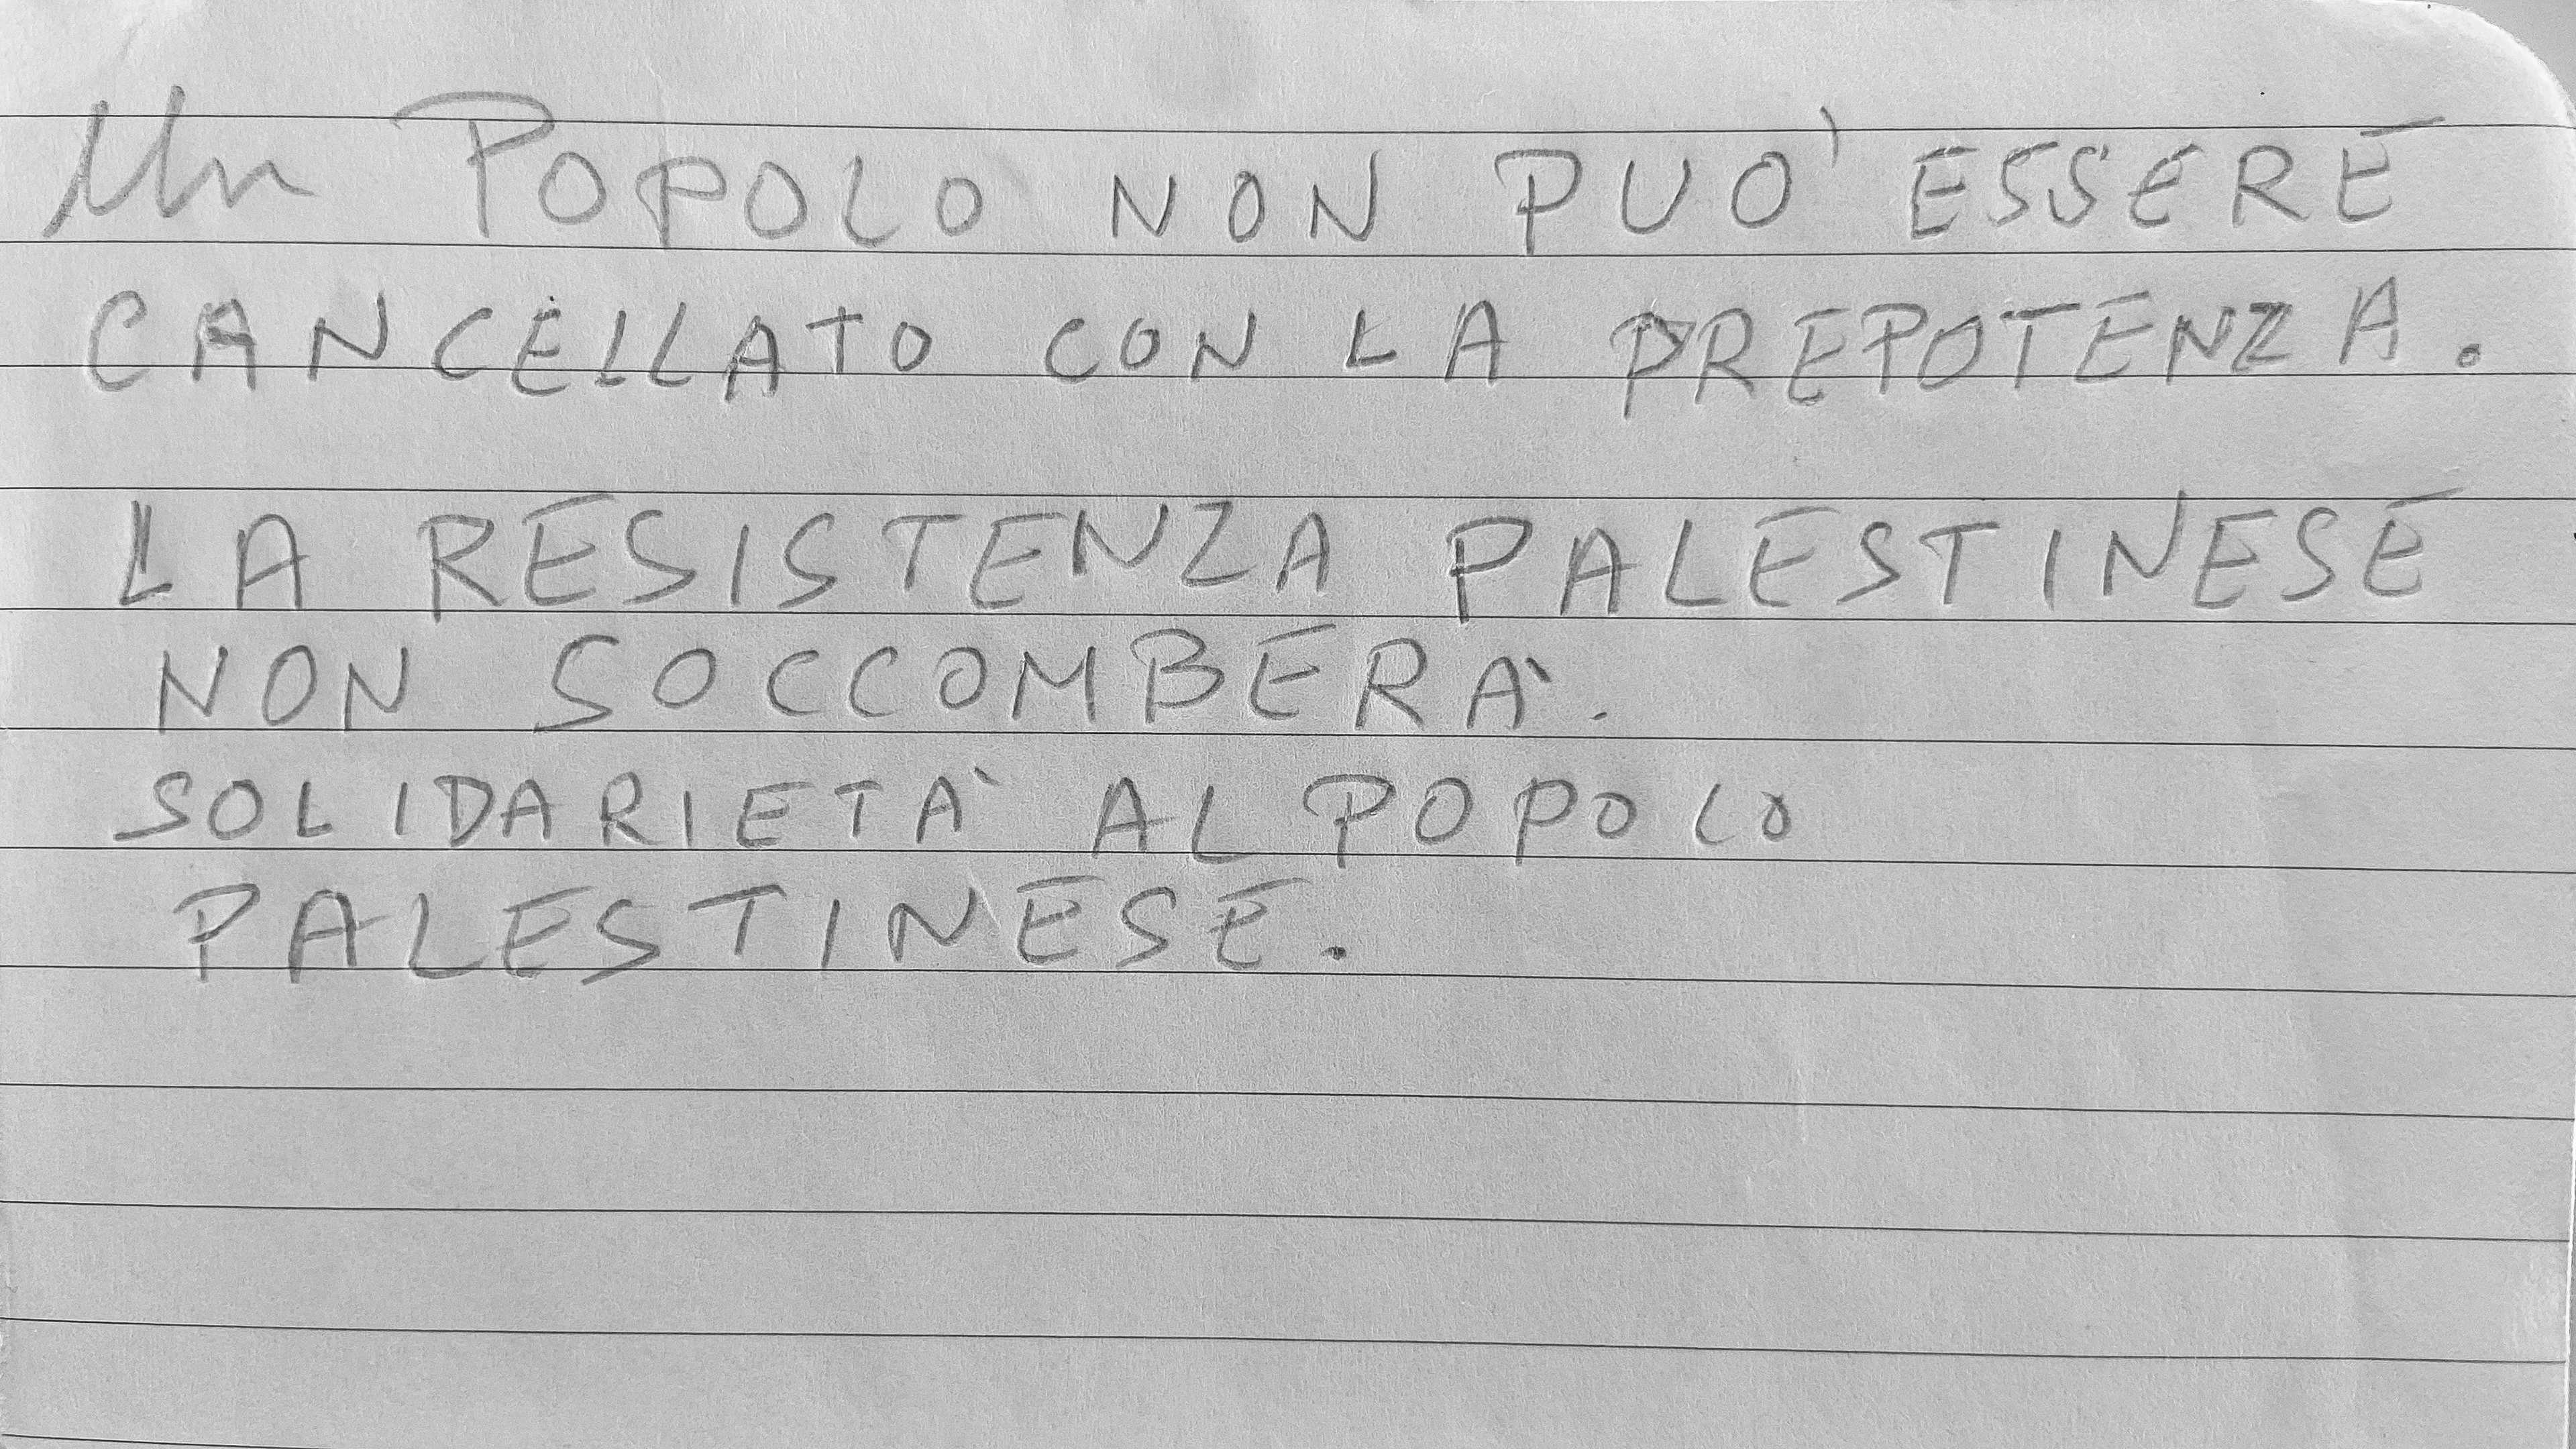 Un POPOLO NON PUO' ESSERE
CANCELLATO CON LA PREPOTENZA.
LA RESISTENZA PALESTINESE
NON SOCCOMBERÀ.
SOLIDARIETÀ AL POPOLO
PALESTINESE.